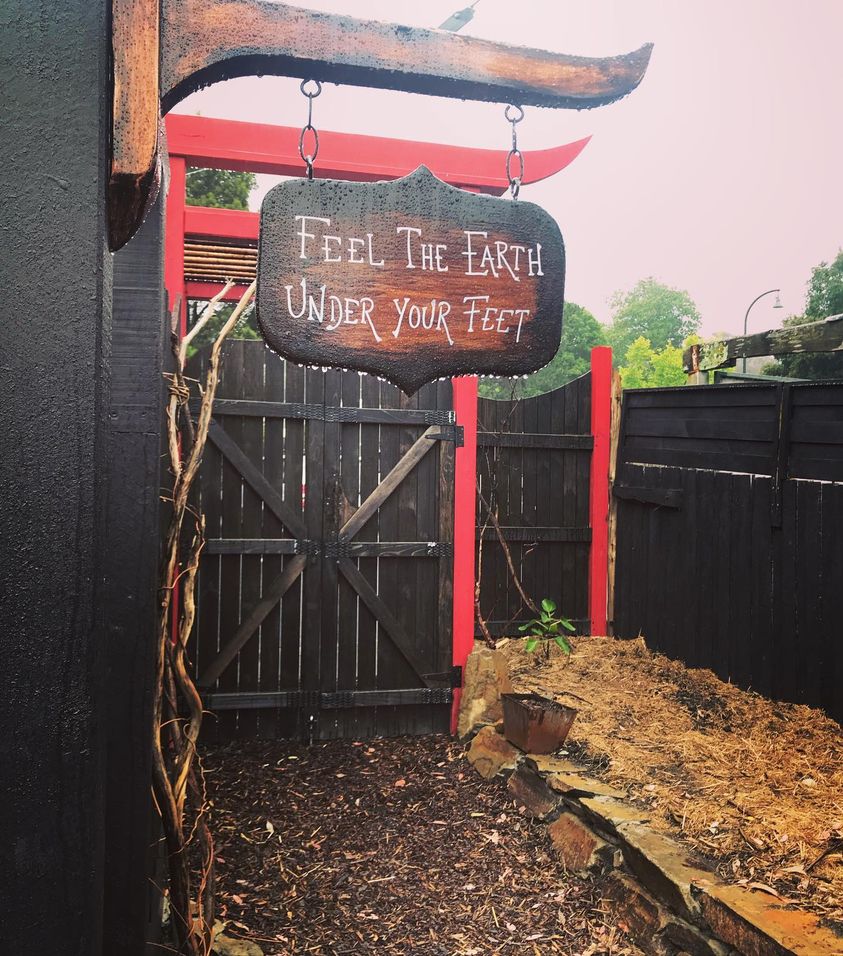 Feel The Earth
Under Your Feet